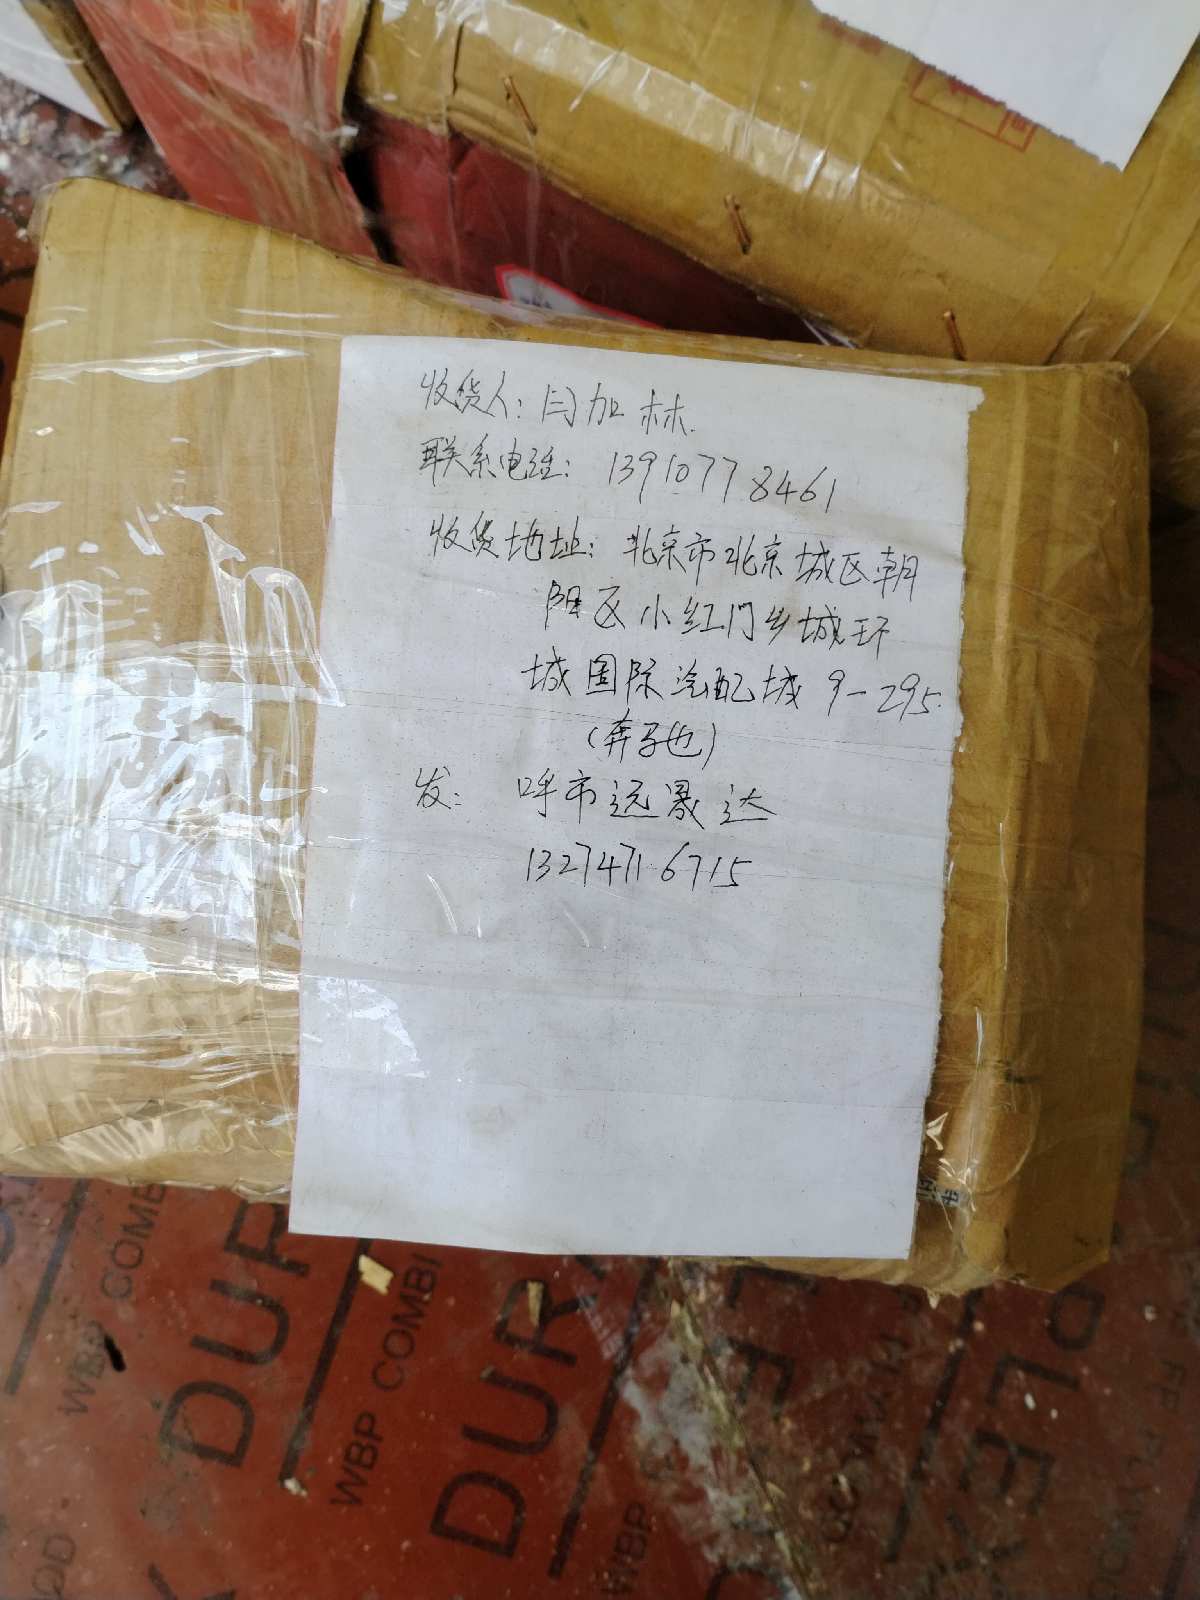 收货人：闫加林.
联系电话：13910778461
收货地址：北京市北京城区朝
阳区小红门乡城环
城国际汽配城 9-295.
(奔子也)
发： 呼市远晟达
13274716715
WBP COMBI
DUR
WBP COMBI
DUR
WBP